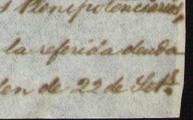 Plenipotenciarios,
la referida deuda
en de 22 de Set.